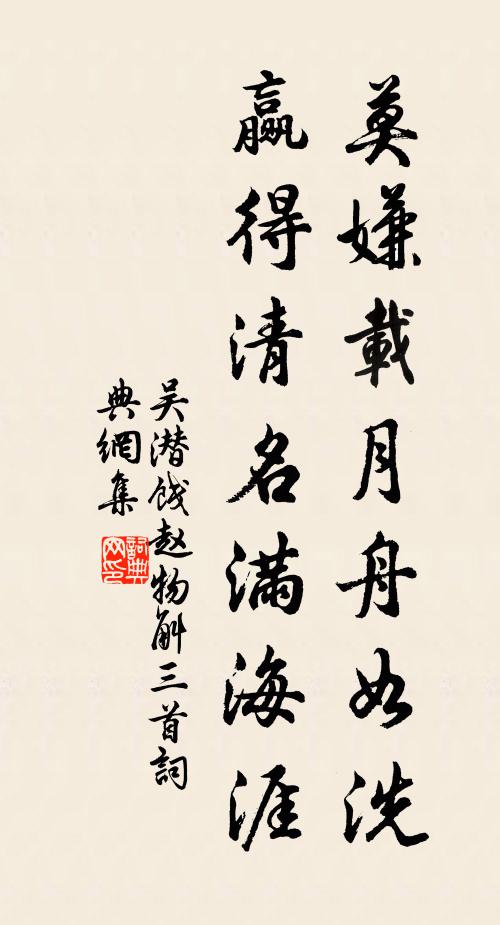 莫嫌載月舟如洗
贏得清名滿海涯
吴潜饯赵物斛三首詞
典網集
詞典
网印